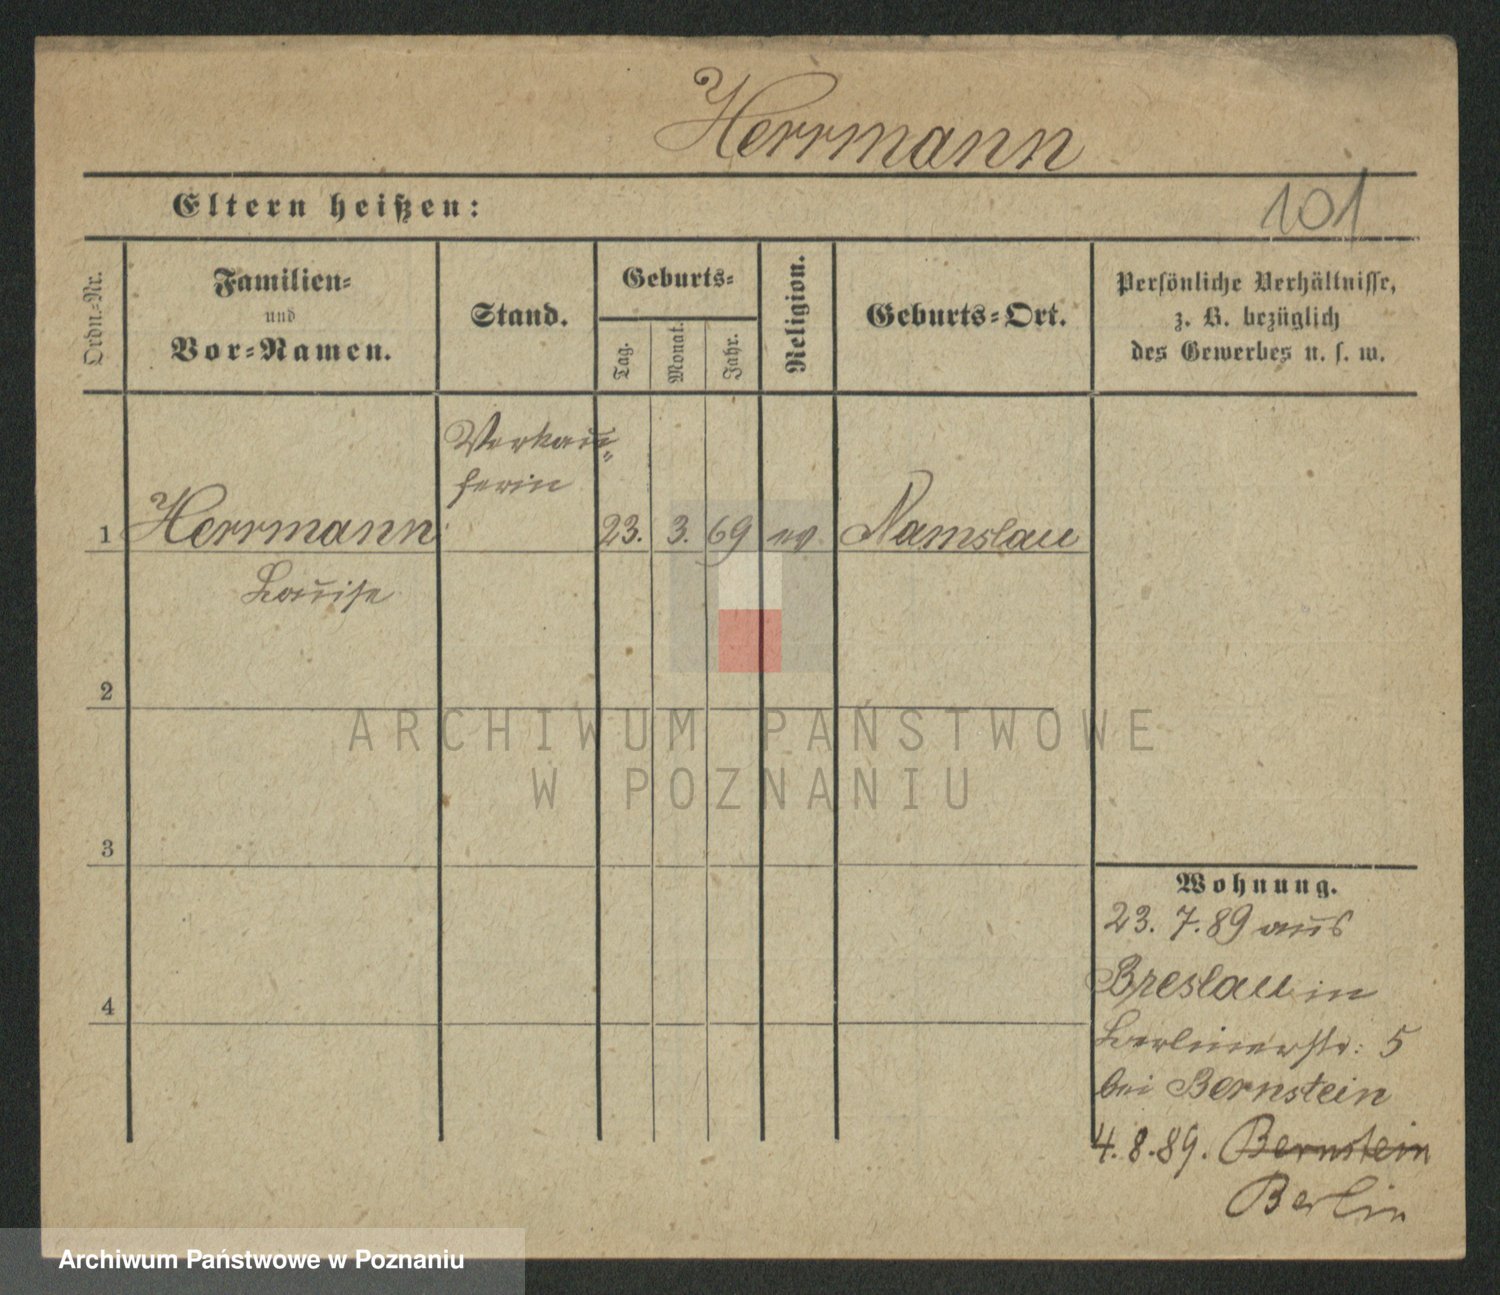 Herrmann
Eltern heißen:
101
Ordn.-Nr.
Familien-
und
Vor-Namen.
Stand.
Geburts-
Tag.
Monat.
Jahr.
Religion.
Geburts-Ort.
Persönliche Verhältnisse,
z. B. bezüglich
des Gewerbes u. s. w.
Verkäu-
ferin
1 Herrmann 23. 3. 69 ev Namslau
Louise
2
ARCHIWUM PAŃSTWOWE
W POZNANIU
3
Wohnung.
23. 7. 89 aus
Breslau in
4
Berlinerstr: 5
bei Bernstein
4. 8. 89. Bernstein
Berlin
Archiwum Państwowe w Poznaniu